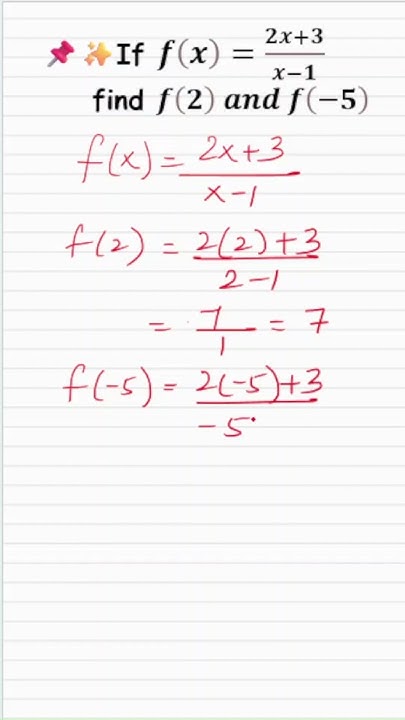 📌 ✨If f(x) = \frac{2x+3}{x-1}
find f(2) and f(-5)
f(x) = \frac{2x+3}{x-1}
f(2) = \frac{2(2)+3}{2-1}
= \frac{7}{1} = 7
f(-5) = \frac{2(-5)+3}{-5}